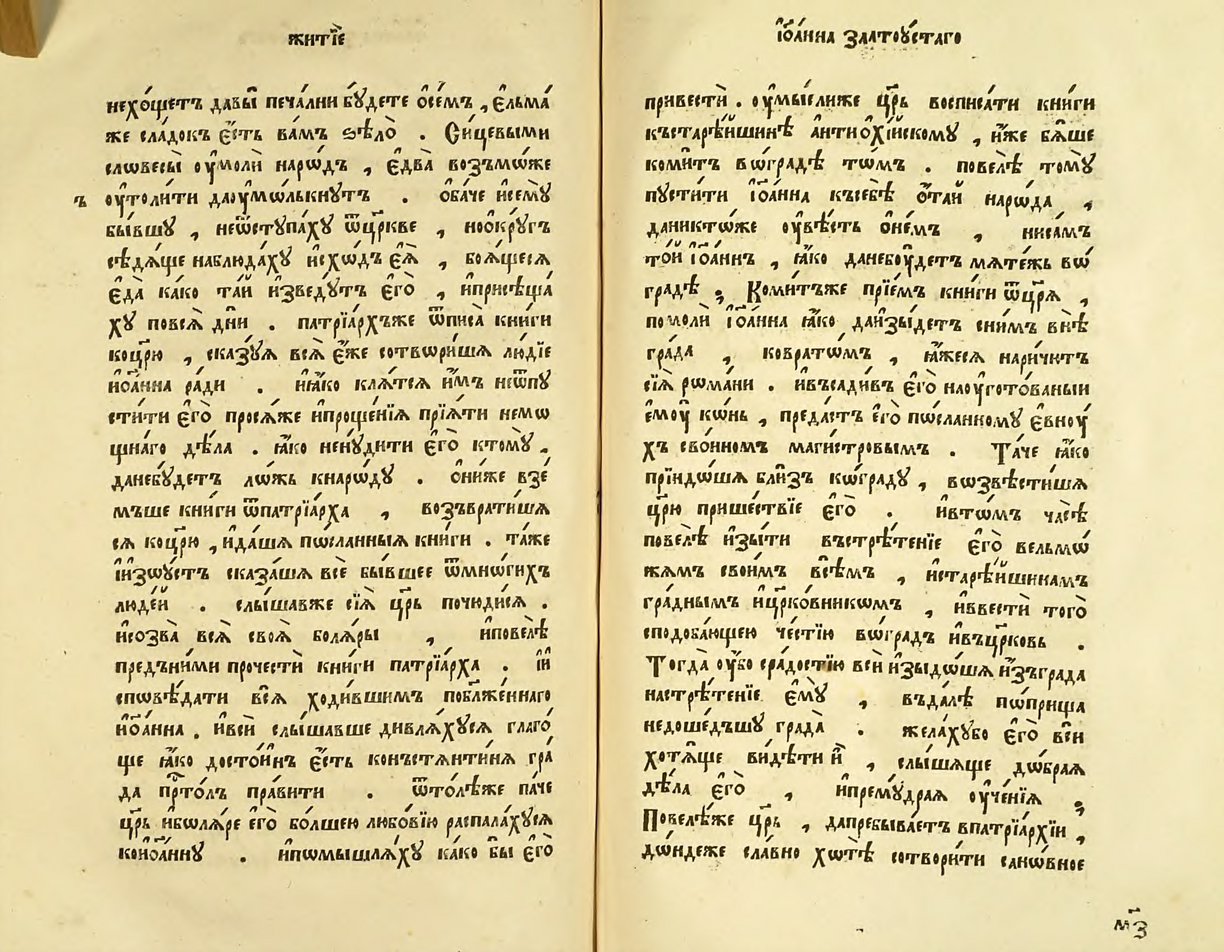 житїе
нехо́щетъ дабы̀ печа́лни бꙋ́дете ѻ҆се́мъ , є҆льма́
же сла́докъ є҆́сть ва́мъ ѕѣло̀ . Си́цевыми
словесы̀ ᲂу҆молѝ наро́дъ , є҆два̀ возъмѡ́же
ᲂу҆толи́ти даᲂу҆мѡ́лькнꙋтъ . ѻ҆ба́че и҆семꙋ̀
бы́вшꙋ , неѿстꙋпа́хꙋ ѿцр҃кве , ноѻ҆́крꙋгъ
сѣдѧ́ще наблюда́хꙋ и҆схѡ́дъ є҆ѧ̀ , боѧ́щесѧ
є҆да̀ ка́ко та́й и҆зведꙋ́тъ є҆го̀ , и҆присѣща́
хꙋ повсѧ̀ дн҃и . патрїа́рхъже ѿписа̀ кни́ги
коцр҃ю , ска́зꙋѧ всѧ̀ є҆́же сотвори́шѧ лю́дїе
и҆ѡа́нна ра́ди . и҆ꙗ҆́ко клѧ́тсѧ и҆̀мъ неѿпꙋ
сти́ти є҆го̀ просѧ́же и҆проще́нїѧ прїѧ́ти немѡ
щна́го дѣ́ла . ꙗ҆́ко ненꙋ́дити є҆го̀ ктомꙋ̀ ,
данебꙋ́детъ лѡ́жь кнарѡ́дꙋ . ѻ҆ни́же взе́
мъше кни́ги ѿпатрїа́рха , возъврати́шѧ
сѧ коцр҃ю , и҆да́шѧ пѡ́сланныѧ кни́ги . та́же
и҆изᲂу҆́стъ сказа́шѧ всѐ бы́вшее ѿмнѡ́гихъ
люде́й . слы́шавже сїѧ̀ цр҃ь почюди́сѧ .
и҆созва̀ всѧ̀ своѧ̀ болѧ́ры , и҆повелѣ̀
предъни́ми прочестѝ кни́ги патрїа́рха . и҆и҆
спѡвѣ́дати всѧ̀ ходи́вшимъ побл҃же́ннаго
и҆ѡа́нна . и҆всѝ слы́шавше дивлѧ́хꙋсѧ глаго́
ще ꙗ҆́ко досто́инъ є҆́сть конъстѧнти́нѧ гра́
да прⷭ҇то́лъ пра́вити . ѿто́лѣже па́че
цр҃ь и҆бѡлѧ́ре є҆го̀ бо́лшею любо́вїю распала́хꙋсѧ
кои҆ѡа́ннꙋ . и҆пѡмышлѧ́хꙋ ка́ко бы̀ є҆го̀
ї҆ѡа́нна златоꙋ́стаго
привестѝ . ᲂу҆мы́слиже цр҃ь восписа́ти кни́ги
къстарѣ́йшинѣ а҆нтиѻхі́йскомꙋ , и҆́же бѧ́ше
коми́тъ вѡгра́дѣ тѡ́мъ . повелѣ̀ томꙋ̀
пꙋсти́ти ї҆ѡа́нна късебѣ̀ ѻ҆та́й нарѡ́да ,
даникто́же ᲂу҆вѣ́сть ѻ҆не́мъ , ниса́мъ
то́й ї҆ѡа́ннъ , ꙗ҆́ко данебꙋ́детъ мѧте́жь вѡ́
гра́дѣ ; Коми́тъже прїе́мъ кни́ги ѿцр҃ѧ ,
помолѝ ї҆ѡа́нна ꙗ҆́ко даи҆зы́детъ сни́мъ внѣ̀
гра́да , ковратѡ́мъ , ꙗ҆́жесѧ нари́чютъ
сїѧ̀ рѡма́ни . и҆въсади́въ є҆го̀ наᲂу҆гото́ваныи
є҆мᲂу̀ кѡ́нь , преда́стъ є҆го̀ пѡ́сланномꙋ є҆внᲂу́
хъ сво́иномъ маги́стровымъ . Та́че ꙗ҆́ко
прїидо́шѧ бли́зъ кѡ́градꙋ , вѡзвѣсти́шѧ
цр҃ю прише́ствїе є҆го̀ . и҆втѡ́мъ ча́сѣ
повелѣ̀ и҆зы́ти въстрѣ́тенїе є҆го̀ вельмѡ́
жѧмъ свои́мъ всѣ́мъ , и҆старѣ́йшинамъ
гра́днымъ и҆цр҃ко́вникѡмъ , и҆ввестѝ того̀
сподоба́ющею че́стїю вѡгра́дъ и҆въцр҃ковь .
Тогда̀ ᲂу҆́бо сра́достїю всѝ и҆зыдо́шѧ и҆зъгра́да
настрѣ́тенїе є҆мꙋ̀ , въдалѣ̀ по́прища
недоше́дъшꙋ гра́да . жела́хꙋбо є҆го̀ всѝ
хотѧ́ще ви́дѣти и҆̀ , слы́шѧще дѡ́браѧ
дѣ́ла є҆го̀ , и҆премꙋ́драѧ ᲂу҆че́нїѧ ;
Повелѣ́же цр҃ь , дапребыва́етъ впатрїа́рхїи ,
дѡ́ндеже сла́вно хѡтѣ̀ сотвори́ти санѡ́вное
м҃з